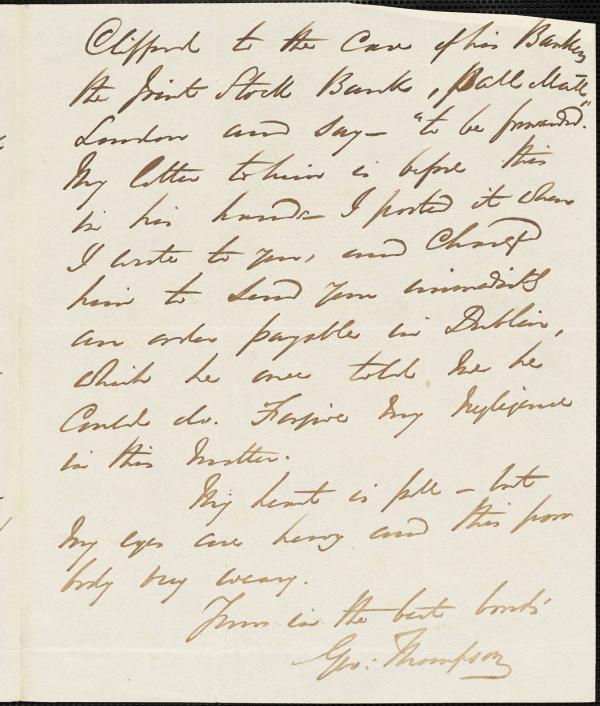 Clifford to the Care of his Bankers
the Joint Stock Bank, Pall Mall
London and say — "to be forwarded."
My letter to him is before this
in his hands — I posted it when
I wrote to you, and charged
him to send you immediately
an order payable in Dublin,
which he once told me he
could do. Forgive my negligence
in this matter.
My heart is full — but
my eyes are heavy and this poor
body very weary.
Yours in the best bonds
Geo: Thompson